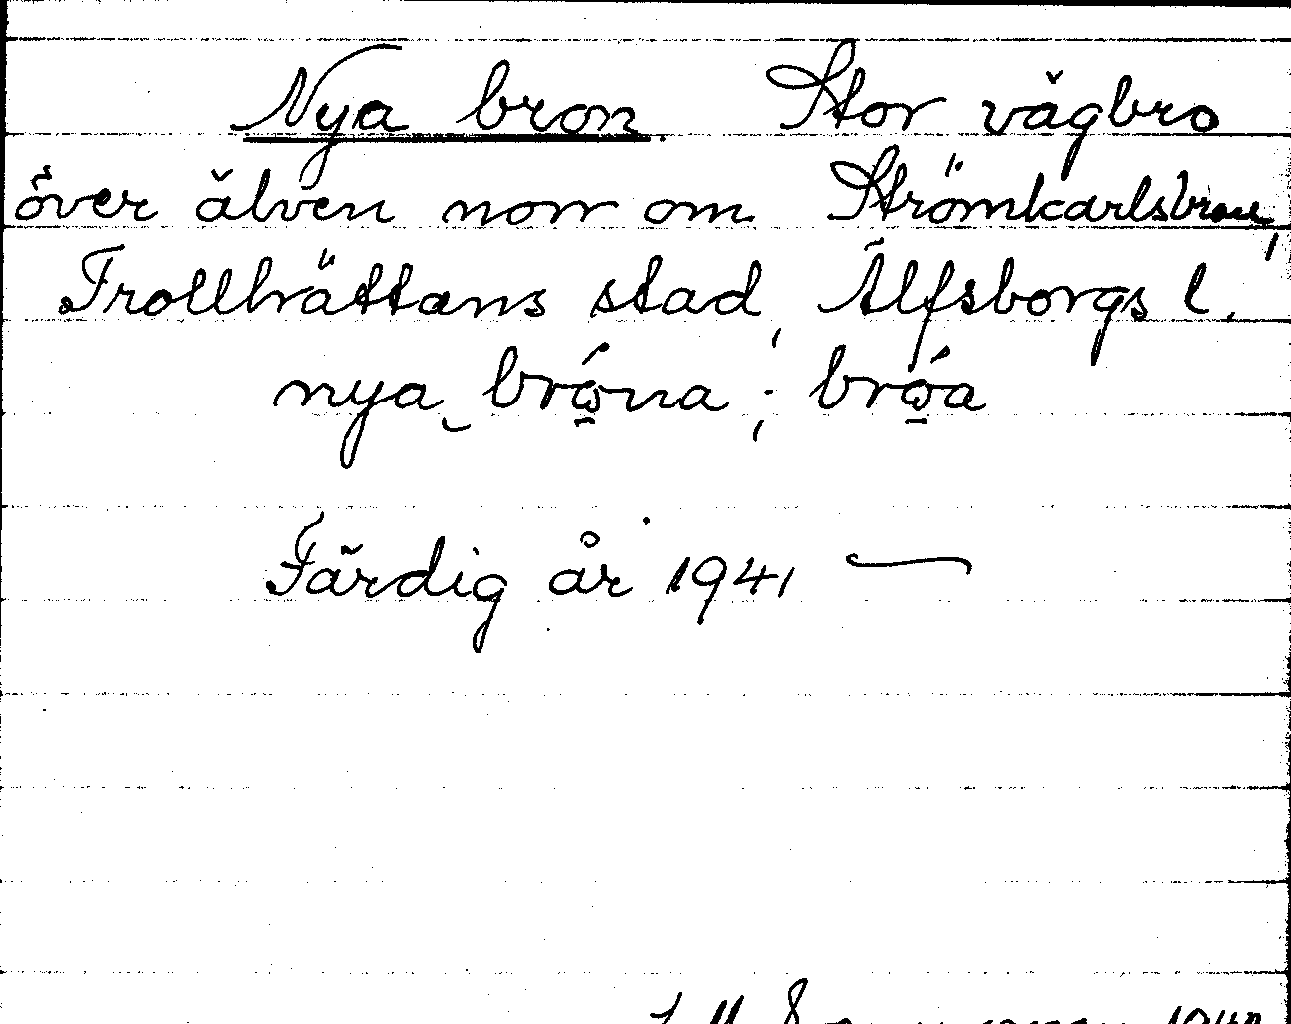 Nya bron. Stor vägbro
över älven norr om Strömkarlsbron,
Trollhättans stad, Älfsborgs l.
nya‿brώ̲na ; brώ̲a
Färdig år 1941 —